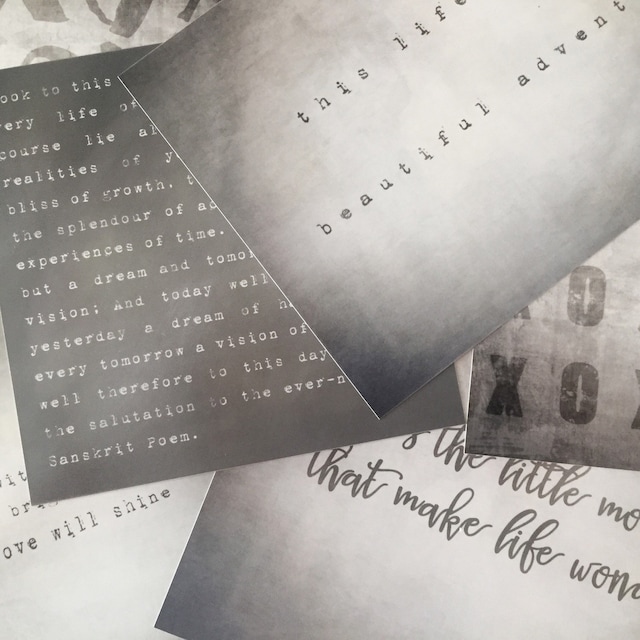 this life
beautiful advent
ook to this
very life of
course lie al
realities of y
bliss of growth, t
the splendour of ac
experiences of time.
but a dream and tomor
vision; And today well
yesterday a dream of h
every tomorrow a vision of
well therefore to this day
the salutation to the ever-n
Sanskrit Poem.
XO
XOX
s the little mo
that make life wond
wit
bri
ove will shine